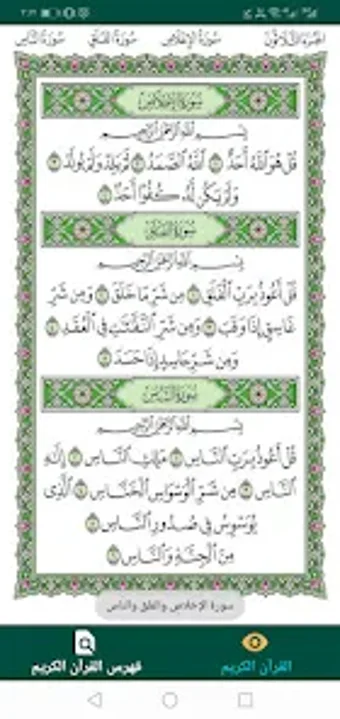 الجزء الثلاثون سورة الإخلاص سورة الفلق سورة الناس
سورة الإخلاص
بسم الله الرحمن الرحيم
قُلْ هُوَ اللَّهُ أَحَدٌ ١ اللَّهُ الصَّمَدُ ٢ لَمْ يَلِدْ وَلَمْ يُولَدْ ٣
وَلَمْ يَكُن لَّهُ كُفُوًا أَحَدٌ ٤
سورة الفلق
بسم الله الرحمن الرحيم
قُلْ أَعُوذُ بِرَبِّ الْفَلَقِ ١ مِن شَرِّ مَا خَلَقَ ٢ وَمِن شَرِّ
غَاسِقٍ إِذَا وَقَبَ ٣ وَمِن شَرِّ النَّفَّاثَاتِ فِي الْعُقَدِ ٤
وَمِن شَرِّ حَاسِدٍ إِذَا حَسَدَ ٥
سورة الناس
بسم الله الرحمن الرحيم
قُلْ أَعُوذُ بِرَبِّ النَّاسِ ١ مَلِكِ النَّاسِ ٢ إِلَٰهِ
النَّاسِ ٣ مِن شَرِّ الْوَسْوَاسِ الْخَنَّاسِ ٤ الَّذِي
يُوَسْوِسُ فِي صُدُورِ النَّاسِ ٥
مِنَ الْجِنَّةِ وَالنَّاسِ ٦
سورة الإخلاص والفلق والناس
القرآن الكريم
فهرس القرآن الكريم